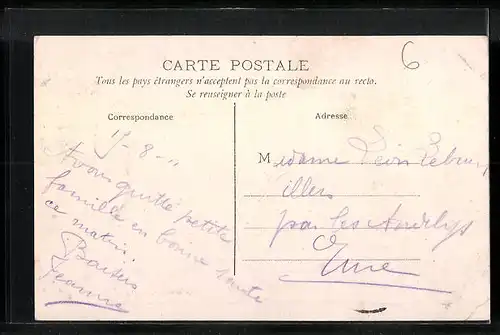 6
CARTE POSTALE
Tous les pays étrangers n'acceptent pas la correspondance au recto.
Se renseigner à la poste
Correspondance
Adresse
15-8-11
Avons quitté petite
famille en bonne santé
ce matin
Baisers
Jeanne
Madame Léon Lebrun
illers
par les Andelys
Eure